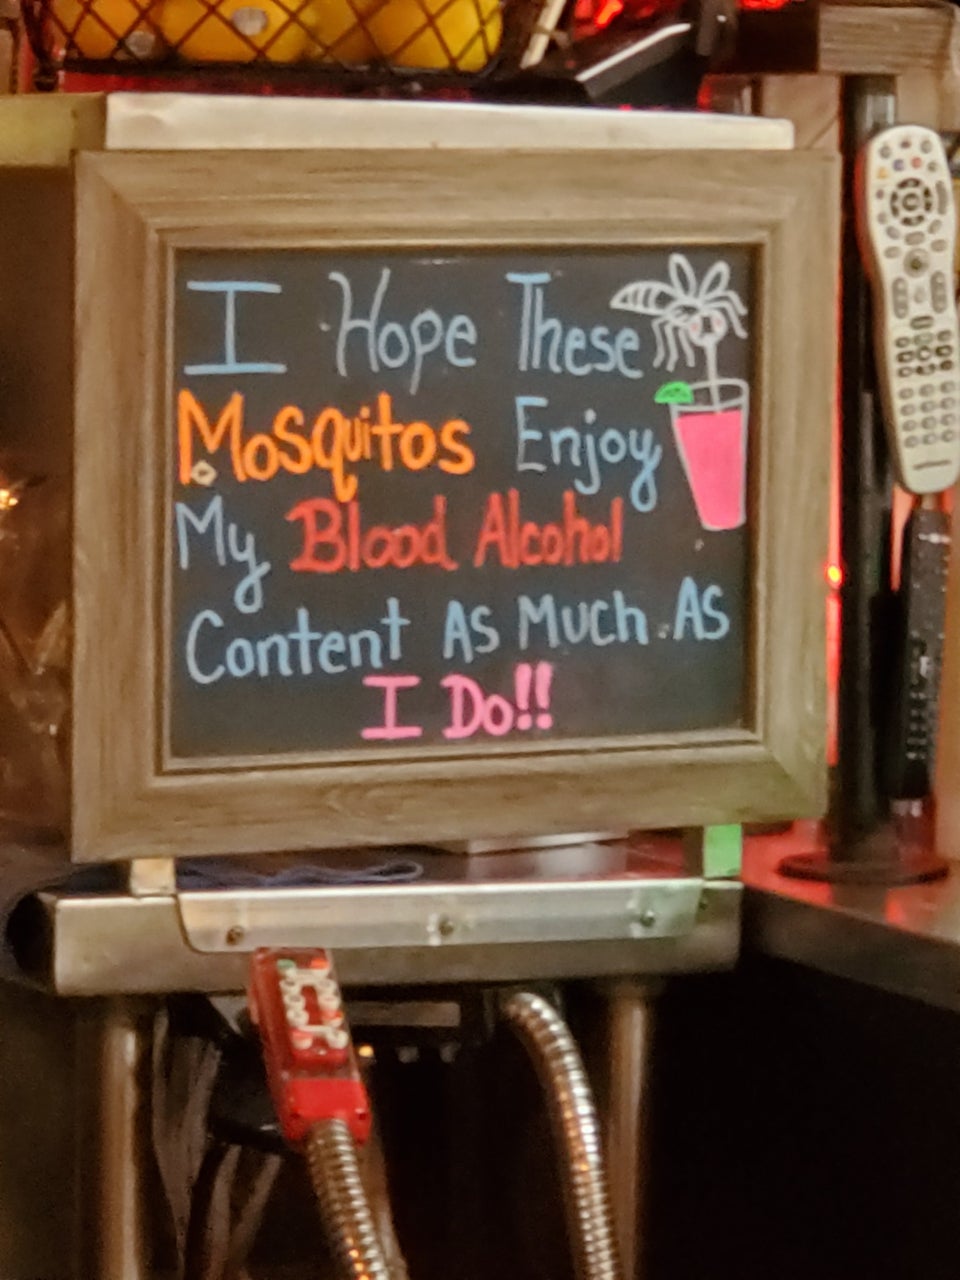 I Hope These
Mosquitos Enjoy
My Blood Alcohol
Content As Much As
I Do!!